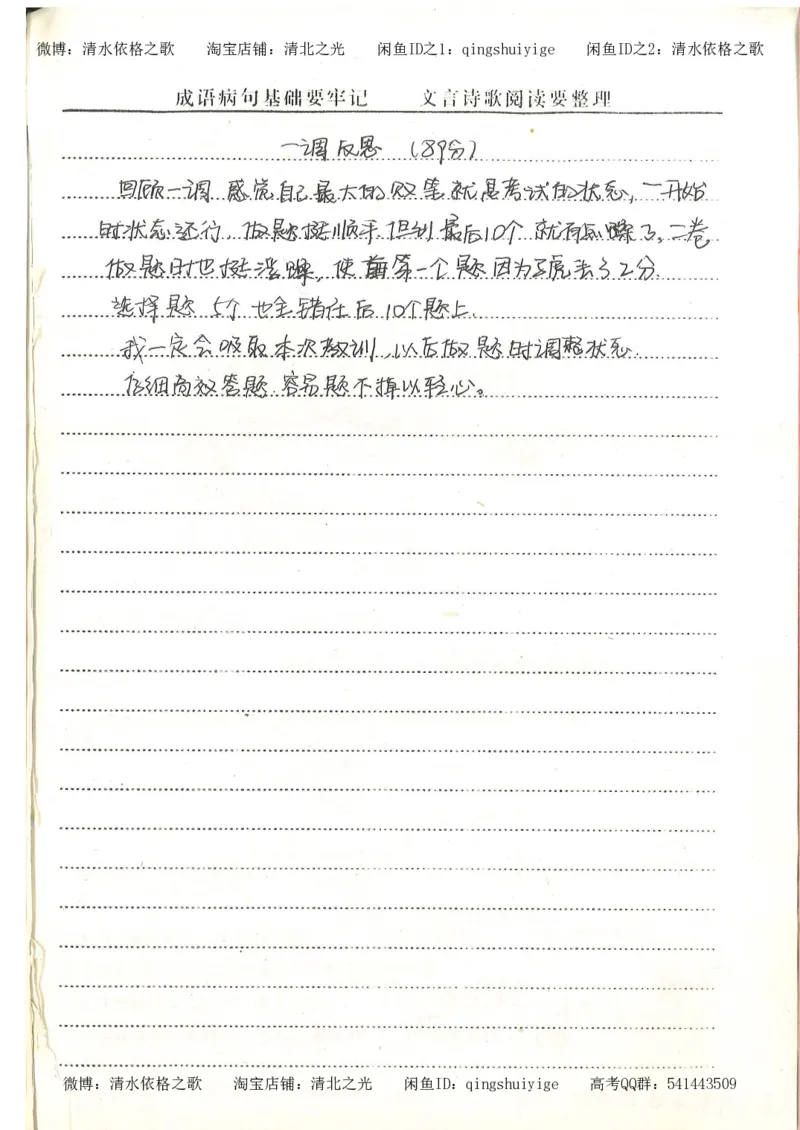 微博：清水依格之歌 淘宝店铺：清北之光 闲鱼ID之1：qingshuiyige 闲鱼ID之2：清水依格之歌
成语病句基础要牢记 文言诗歌阅读要整理
一调反思 （89分）
回顾一调，感觉自己最大的败笔就是考试的状态，一开始
时状态还行，做题挺顺手，但到最后10个就有点躁了，二卷
做题时也挺浮躁，使第一个题因为马虎丢了2分.
选择题 5个也全错在后10个题上.
我一定会吸取本次教训，以后做题时调整状态.
仔细高效答题，容易题不掉以轻心。
微博：清水依格之歌 淘宝店铺：清北之光 闲鱼ID：qingshuiyige 高考QQ群：541443509